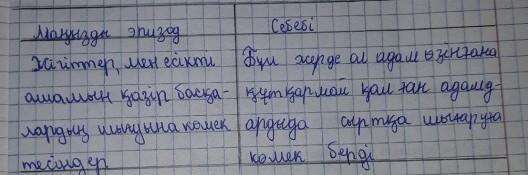 Маңызды эпизод
Себебі
Жігіттер, мен есікті
ашамын қазір басқа-
лардың шығуына көмек
тесіңдер
Бұл жерде ол адам өзін ғана
құтқармай қалған адамд-
арды да сыртқа шығаруға
көмек берді